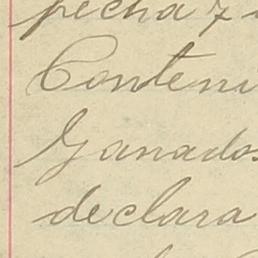 fecha 7
Conteni
Ganados
declara